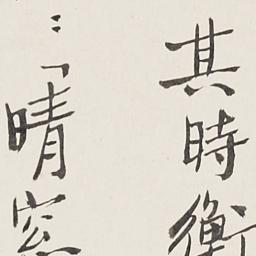 其時衡
：「晴窓